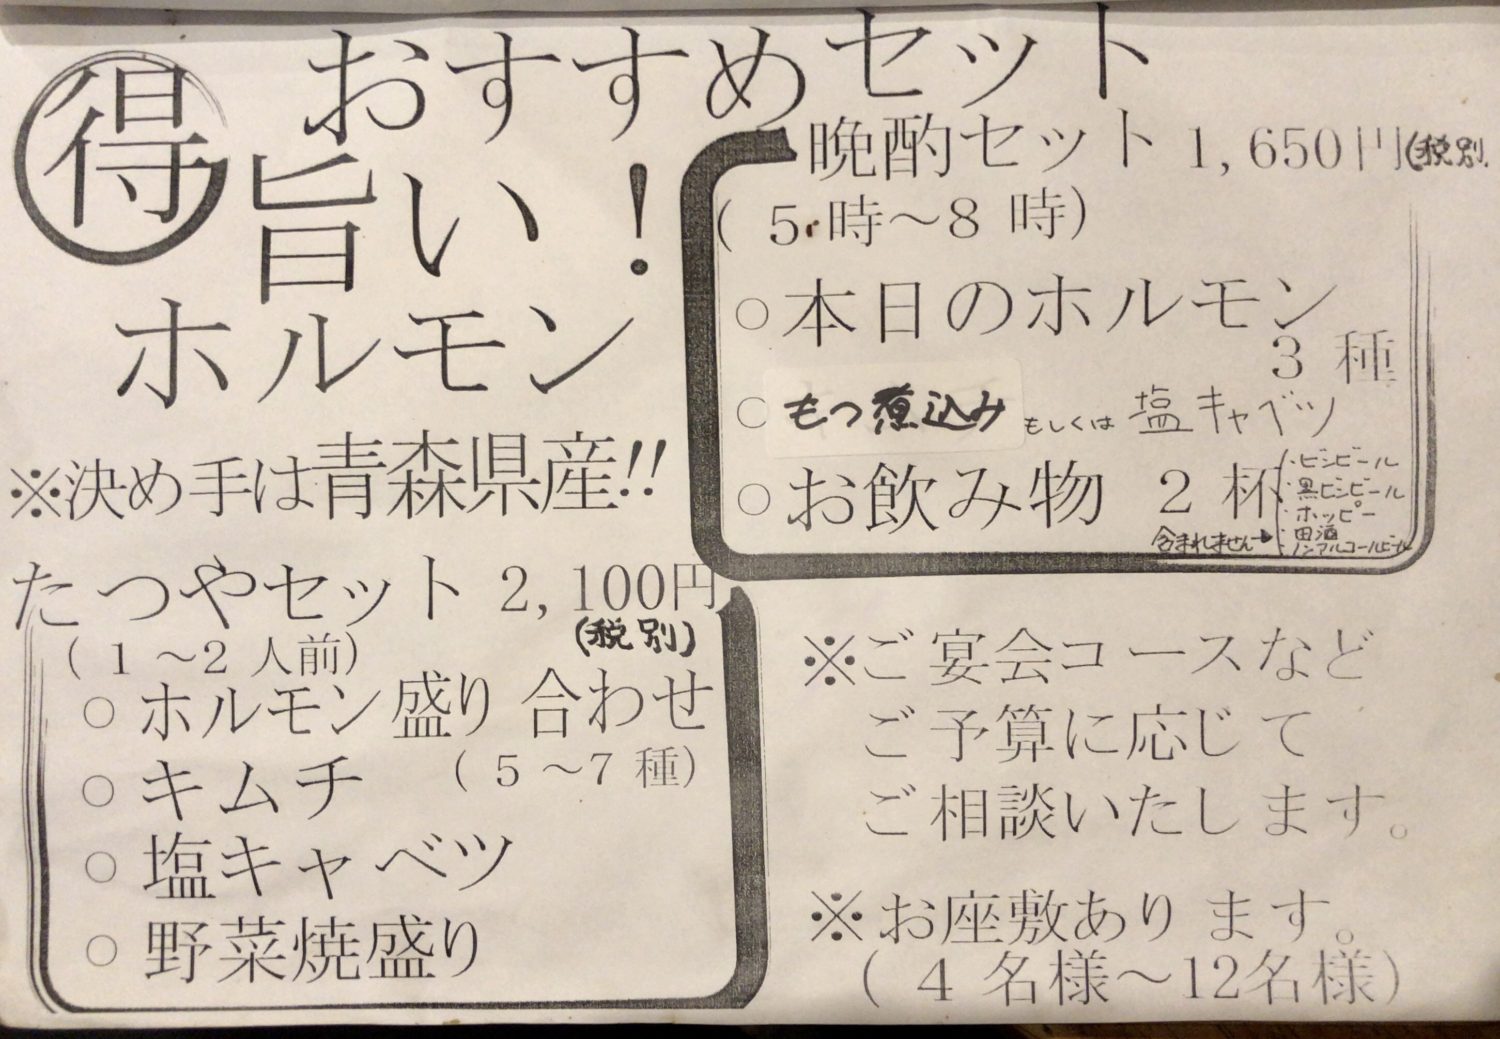 得 おすすめセット
旨い!
ホルモン
※決め手は青森県産!!
たつやセット 2,100円
(税別)
(1~2人前)
○ ホルモン盛り合わせ
(5~7種)
○ キムチ
○ 塩キャベツ
○ 野菜焼盛り
晩酌セット 1,650円(税別
(5時~8時)
○ 本日のホルモン
3種
○ もつ煮込み もしくは 塩キャベツ
○ お飲み物 2杯
・ビンビール
・黒ビンビール
・ホッピー
・田酒
・ノンアルコールビール
含まれません→
※ご宴会コースなど
ご予算に応じて
ご相談いたします。
※お座敷あります。
(4名様~12名様)